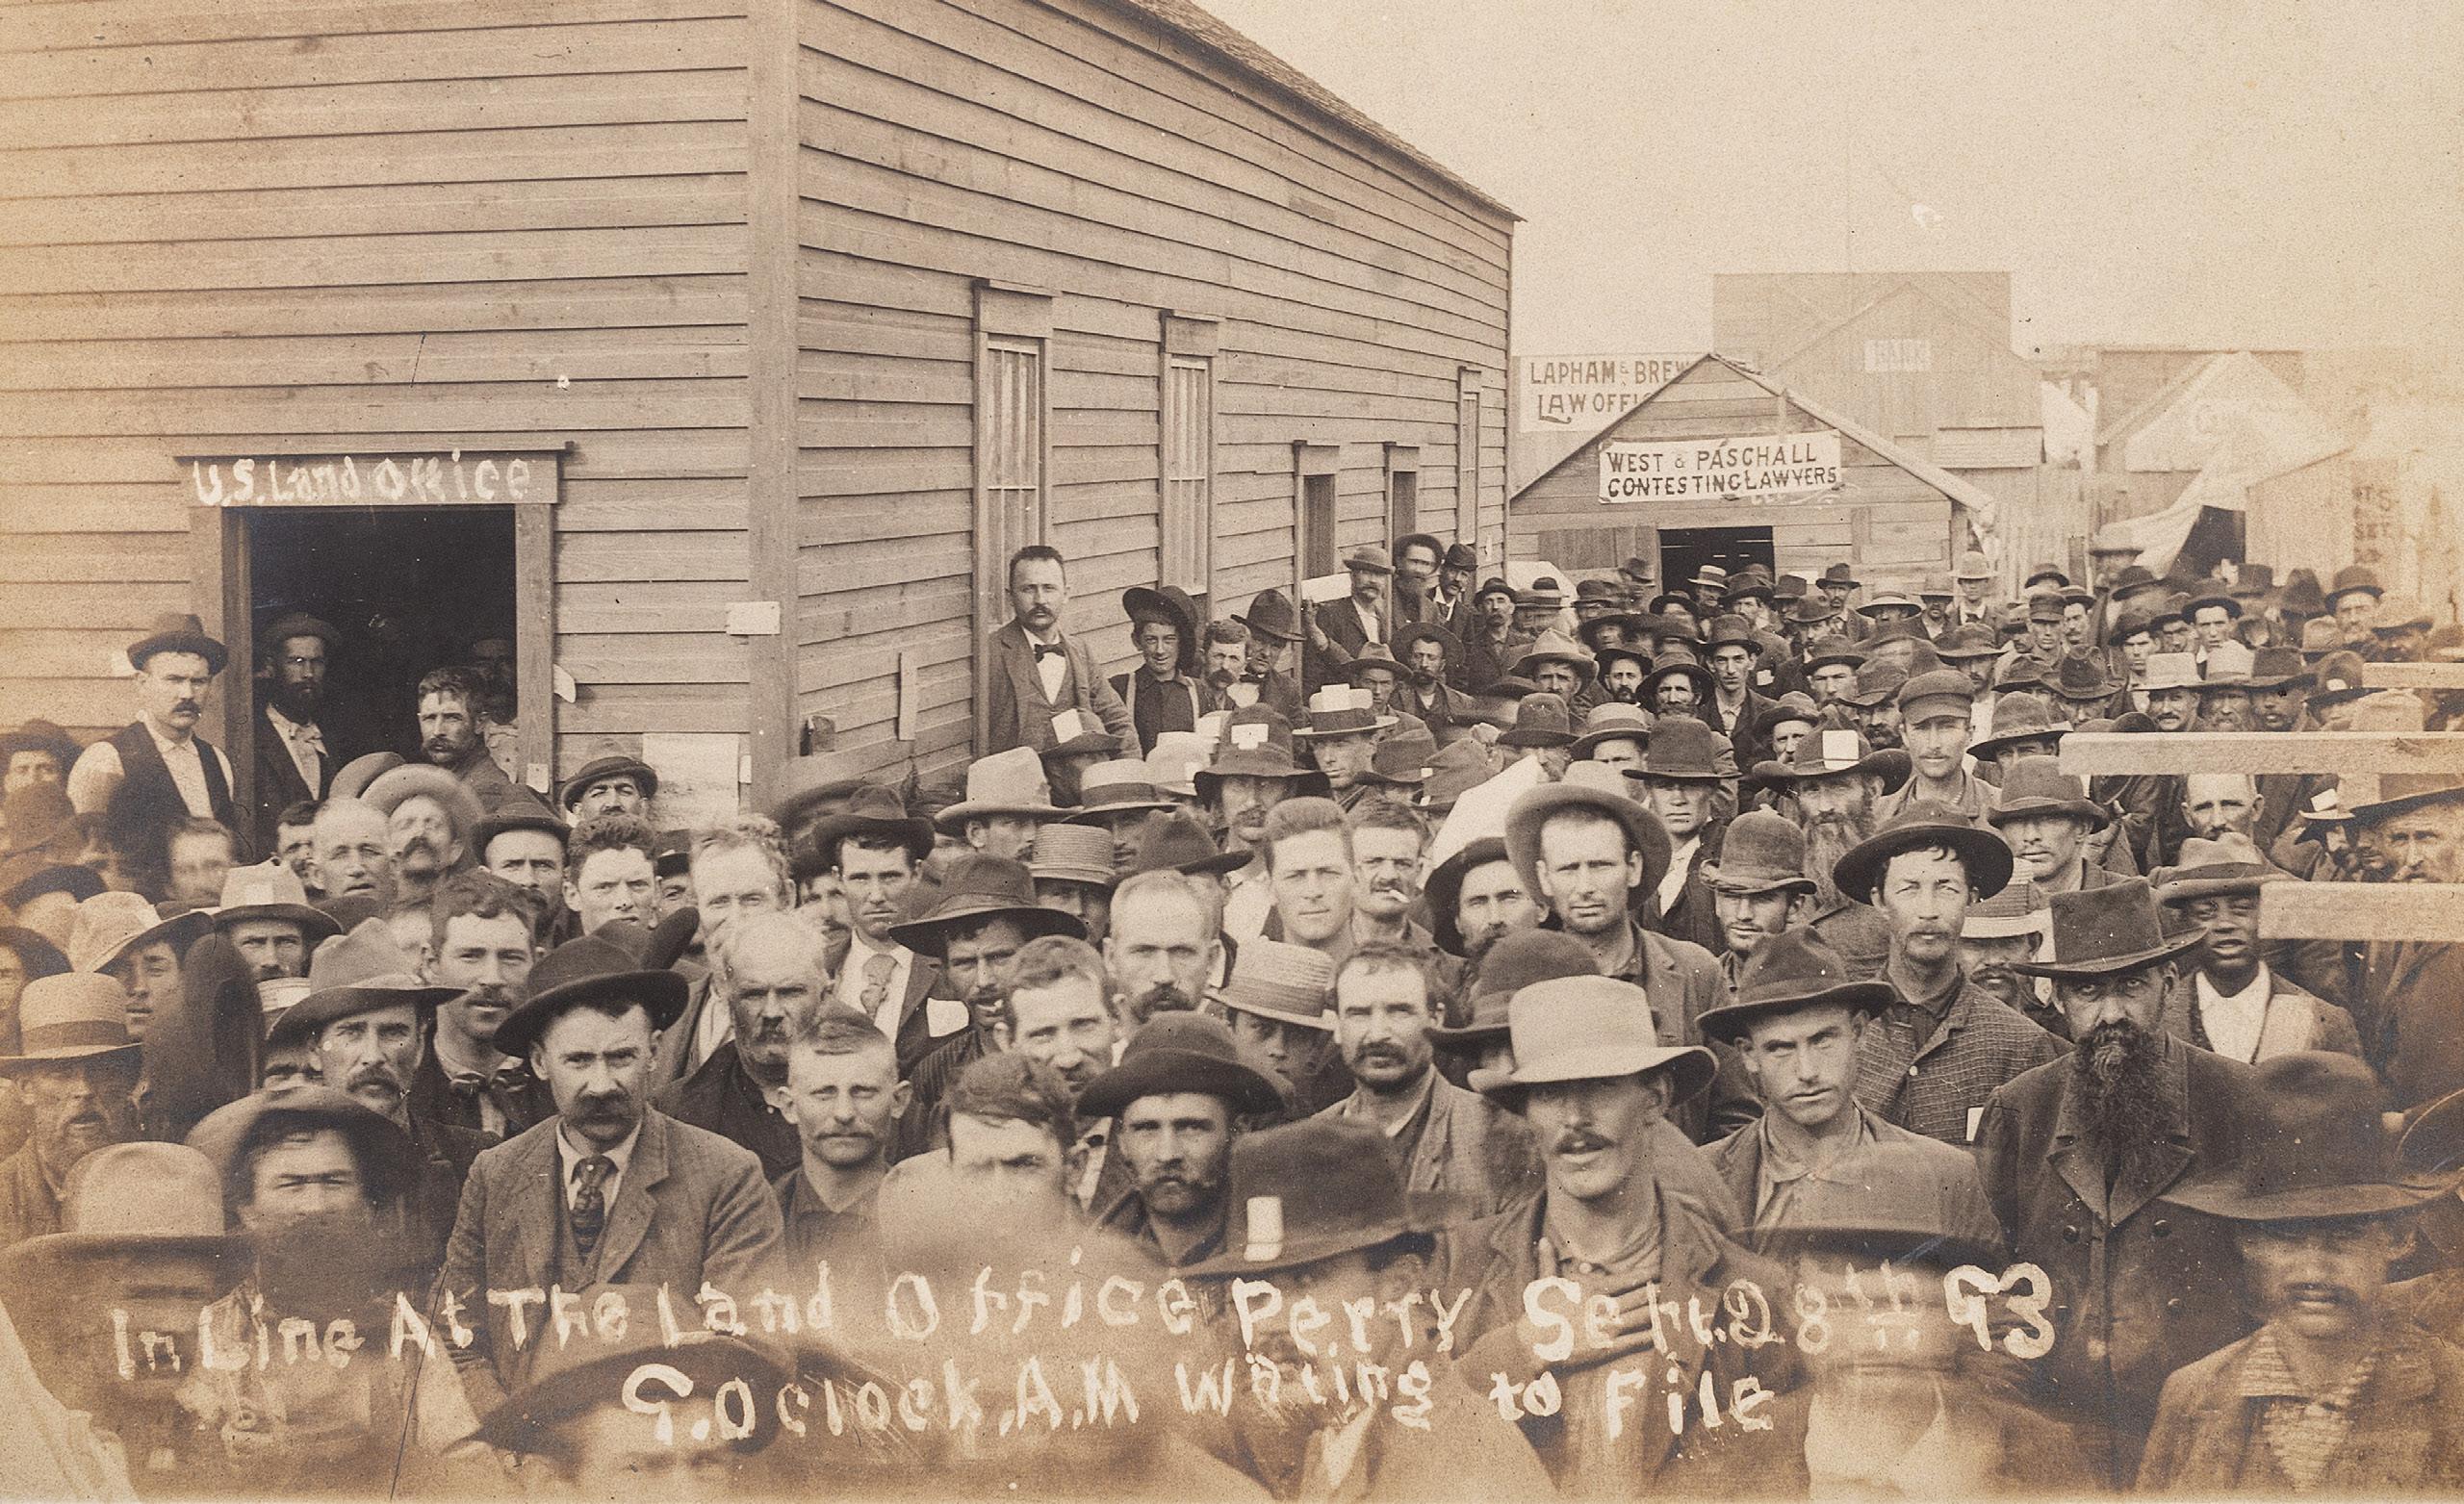 U.S. Land Office
LAPHAM & BREW
LAW OFFIC
WEST & PASCHALL
CONTESTING LAWYERS
In Line At The Land Office Perry Sept. 28th 93
9. Oclock. A.M Wating to File